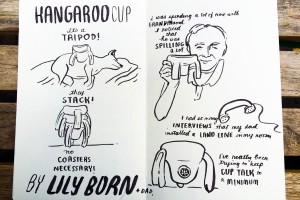 KANGAROO CUP
it's a
TRIPOD!
they
STACK!
no
COASTERS
NECESSARY!
BY LILY BORN + DAD
I was spending a lot of time with
GRANDDAD
I noticed
that
he was
SPILLING
a lot
I had so many
INTERVIEWS that my dad
installed a LAND LINE in my room
I've really been
trying to keep
CUP TALK to
a MINIMUM